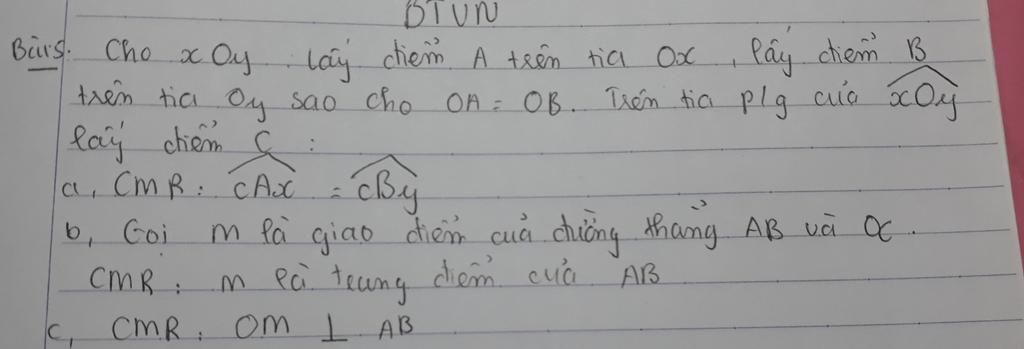 BTVN
Bài 5: Cho xOy lấy điểm A trên tia Ox, lấy điểm B
trên tia Oy sao cho OA = OB. Trên tia p/g của xOy
lấy điểm C :
a, CMR: CAx = CBy
b, Gọi M là giao điểm của đường thẳng AB và OC.
CMR: M là trung điểm của AB
c, CMR: OM ⊥ AB